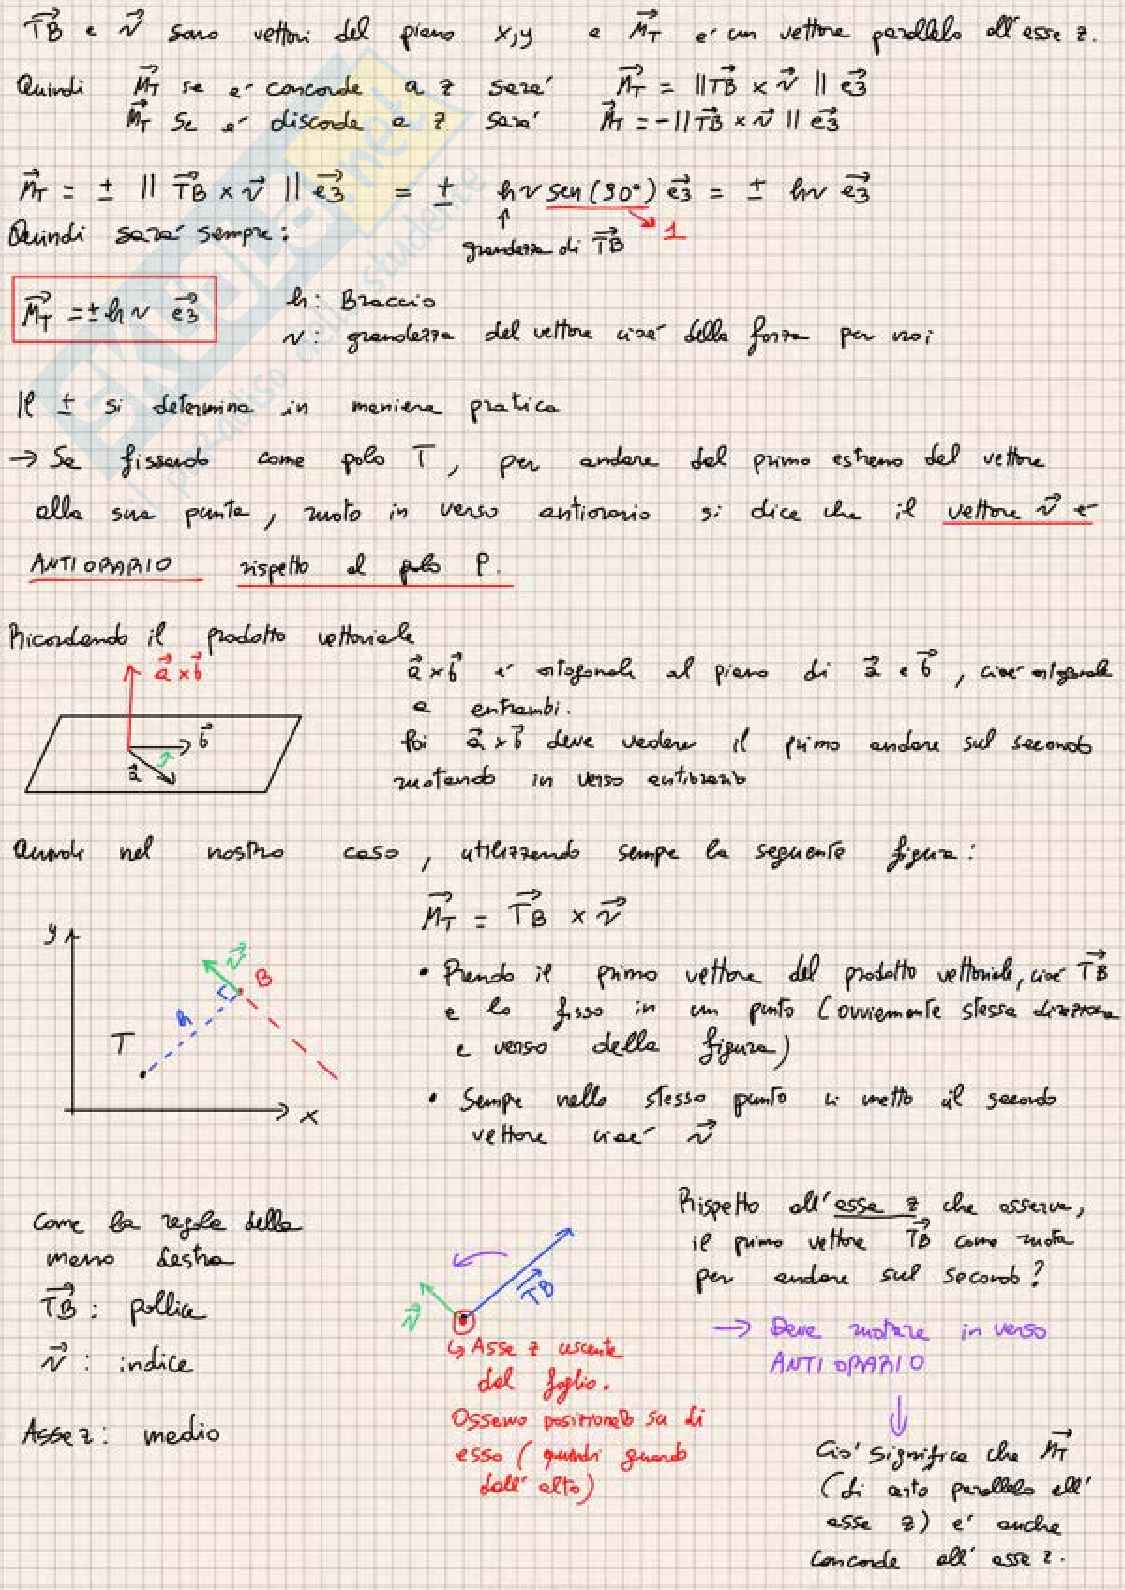 TB e v sono vettori del piano x,y e M_T e' un vettore parallelo all'asse z.
Quindi M_T se e' concorde a z sara' M_T = ||TB × v|| e3
M_T se e' discorde a z sara' M_T = -||TB × v|| e3
M_T = ± ||TB × v|| e3 = ± hv sen(90°) e3 = ± hv e3
1
Quindi sara' sempre:
grandezza di TB
M_T = ± h v e3
h: Braccio
v: grandezza del vettore cioe' della forza per noi
Il ± si determina in maniera pratica
→ Se fissando come polo T, per andare dal primo estremo del vettore
alla sua punta, ruoto in verso antiorario si dice che il vettore v e'
ANTIORARIO rispetto al polo P.
Ricordando il prodotto vettoriale
a×b
b
a
a×b e' ortogonale al piano di a e b, cioe' ortogonale
a entrambi.
Poi a×b deve vedere il primo andare sul secondo
ruotando in verso antiorario
Quindi nel nostro caso, utilizzando sempre la seguente figura:
M_T = TB × v
y
v
B
h
T
x
• Prendo il primo vettore del prodotto vettoriale, cioe' TB
e lo fisso in un punto (ovviamente stessa direzione
e verso della figura)
• Sempre nello stesso punto ci metto il secondo
vettore cioe' v
Come la regola della
mano destra
TB: pollice
v: indice
Asse z: medio
TB
v
↳ Asse z uscente
dal foglio.
Osservo posizionato su di
esso (quindi guardo
dall'alto)
Rispetto all'asse z che osserva,
il primo vettore TB come ruota
per andare sul secondo?
→ Deve ruotare in verso
ANTIORARIO
Cio' significa che M_T
(di certo parallelo all'
asse z) e' anche
concorde all'asse z.
SKUOLA.net